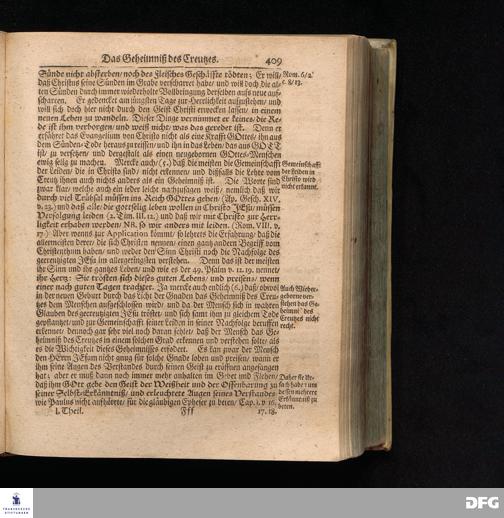 Das Geheimniß des Creutzes. 409
Sünde nicht absterben/ noch des Fleisches Geschäffte tödten; Er will/
daß Christus seine Sünden im Grabe verscharret habe/ und will doch die al-
ten Sünden durch immer wiederholte Vollbringung derselben aufs neue auf-
scharren. Er gedencket am jüngsten Tage zur Herrlichkeit aufzustehen/ und
will sich doch hier nicht durch den Geist Christi erwecken lassen/ in einem
neuen Leben zu wandeln. Dieser Dinge vernimmet er keines/ die Re-
de ist ihm verborgen/ und weiß nicht/ was das geredet ist. Denn er
erfähret das Evangelium von Christo nicht als eine Krafft GOttes/ ihn aus
dem Sünden-Tode heraus zu reissen/ und ihn in das Leben/ das aus GOTT
ist/ zu versetzen/ und dergestalt als einen neugebornen GOttes-Menschen
ewig selig zu machen. Mercke auch/ (5.) daß die meisten die Gemeinschafft
der Leiden/ die in Christo sind/ nicht erkennen/ und dißfalls die Lehre vom
Creutz ihnen auch nichts anders als ein Geheimniß ist. Die Worte sind
zwar klar/ welche auch ein jeder leicht nachzusagen weiß/ nemlich daß wir
durch viel Trübsal müssen ins Reich GOttes gehen/ (Ap. Gesch. XIV,
v. 23.) und daß alle/ die gottselig leben wollen in Christo JEsu/ müssen
Verfolgung leiden (2. Tim. III. 12.) und daß wir mit Christo zur Herr-
ligkeit erhaben werden/ NB. so wir anders mit leiden. (Rom. VIII. v.
17.) Aber wenns zur Application kömmt/ so lehret die Erfahrung/ daß die
allermeisten derer/ die sich Christen nennen/ einen gantz andern Begriff vom
Christenthum haben/ und weder der Sinn Christi noch die Nachfolge des
gecreutzigten JEsu im allergeringsten verstehen. Denn das ist der meisten
ihr Sinn und ihr gantzes Leben/ und wie es der 49. Psalm v. 12. 19. nennet/
ihr Hertz: Sie trösten sich dieses guten Lebens/ und preisens/ wenn
einer nach guten Tagen trachtet. Ja mercke auch endlich (6.) daß/ obwol
in der neuen Geburt durch das Licht der Gnaden das Geheimniß des Creu-
tzes dem Menschen aufgeschlossen wird/ und da der Mensch sich in wahren
Glauben des gecreutzigten JEsu tröstet/ und sich samt ihm zu gleichem Tode
gepflantzet/ und zur Gemeinschafft seiner Leiden in seiner Nachfolge beruffen
erkennet/ dennoch gar sehr viel noch daran fehlet/ daß der Mensch das Ge-
heimniß des Creutzes in einem solchen Grad erkennen und verstehen solte/ als
es die Wichtigkeit dieses Geheimnisses erfodert. Es kan zwar der Mensch
den HErrn JEsum nicht gnug für solche Gnade loben und preisen/ wann er
ihm seine Augen des Verstandes durch seinen Geist zu eröffnen angefangen
hat; aber er muß dann noch immer mehr anhalten im Gebet und Flehen/
daß ihm GOtt gebe den Geist der Weißheit und der Offenbarung zu
seiner Selbst-Erkänntniß/ und erleuchtete Augen seines Verstandes/
wie Paulus nicht aufhörete/ für die gläubigen Epheser zu beten/ Cap. 1. v. 16.
I. Theil. Fff 17. 18.
Rom. 6/2
c. 8/13.
Gemeinschafft
der Leiden in
Christo wird
nicht erkannt.
Auch Wieder-
geborne ver-
stehen das Ge-
heimniß des
Creutzes nicht
recht.
Daher sie Ur-
sach habe/ um
dessen mehrere
Erkäntniß zu
beten.
FRANCKESCHE
STIFTUNGEN
DFG